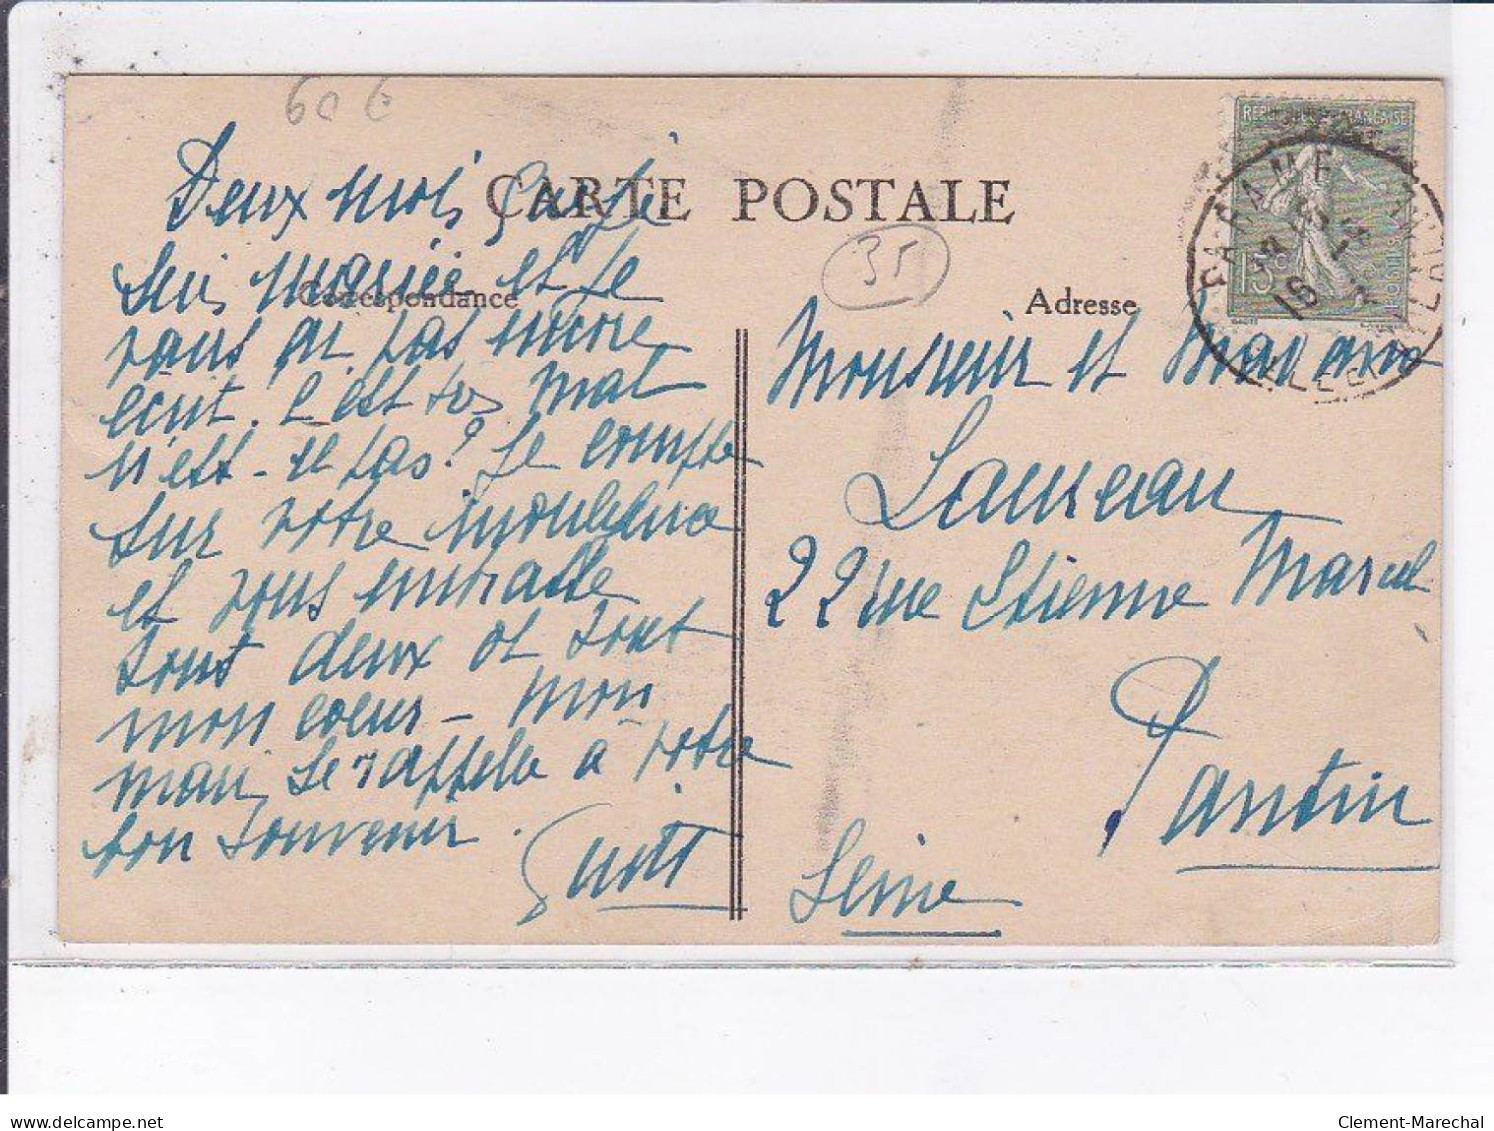 60 €
CARTE POSTALE
Deux mois que je
suis mariée et je
Correspondance
vous ai pas encore
écrit. C'est très mal
n'est-ce pas? Je compte
sur votre indulgence
et vous embrasse
tous deux de tout
mon coeur - mon
mari se rappelle à votre
bon souvenir.
35
Adresse
Monsieur et Madame
Laureau
22 rue Etienne Marcel
Pantin
Seine
REPUBLIQUE FRANÇAISE
15c
PARAME
ILLE
Clement-Marechal
www.delcampe.net